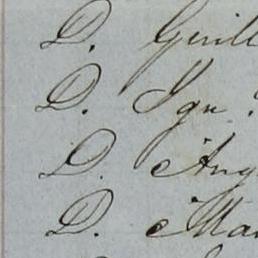 D. Guill
D. Ign
D. Ang
D. Man